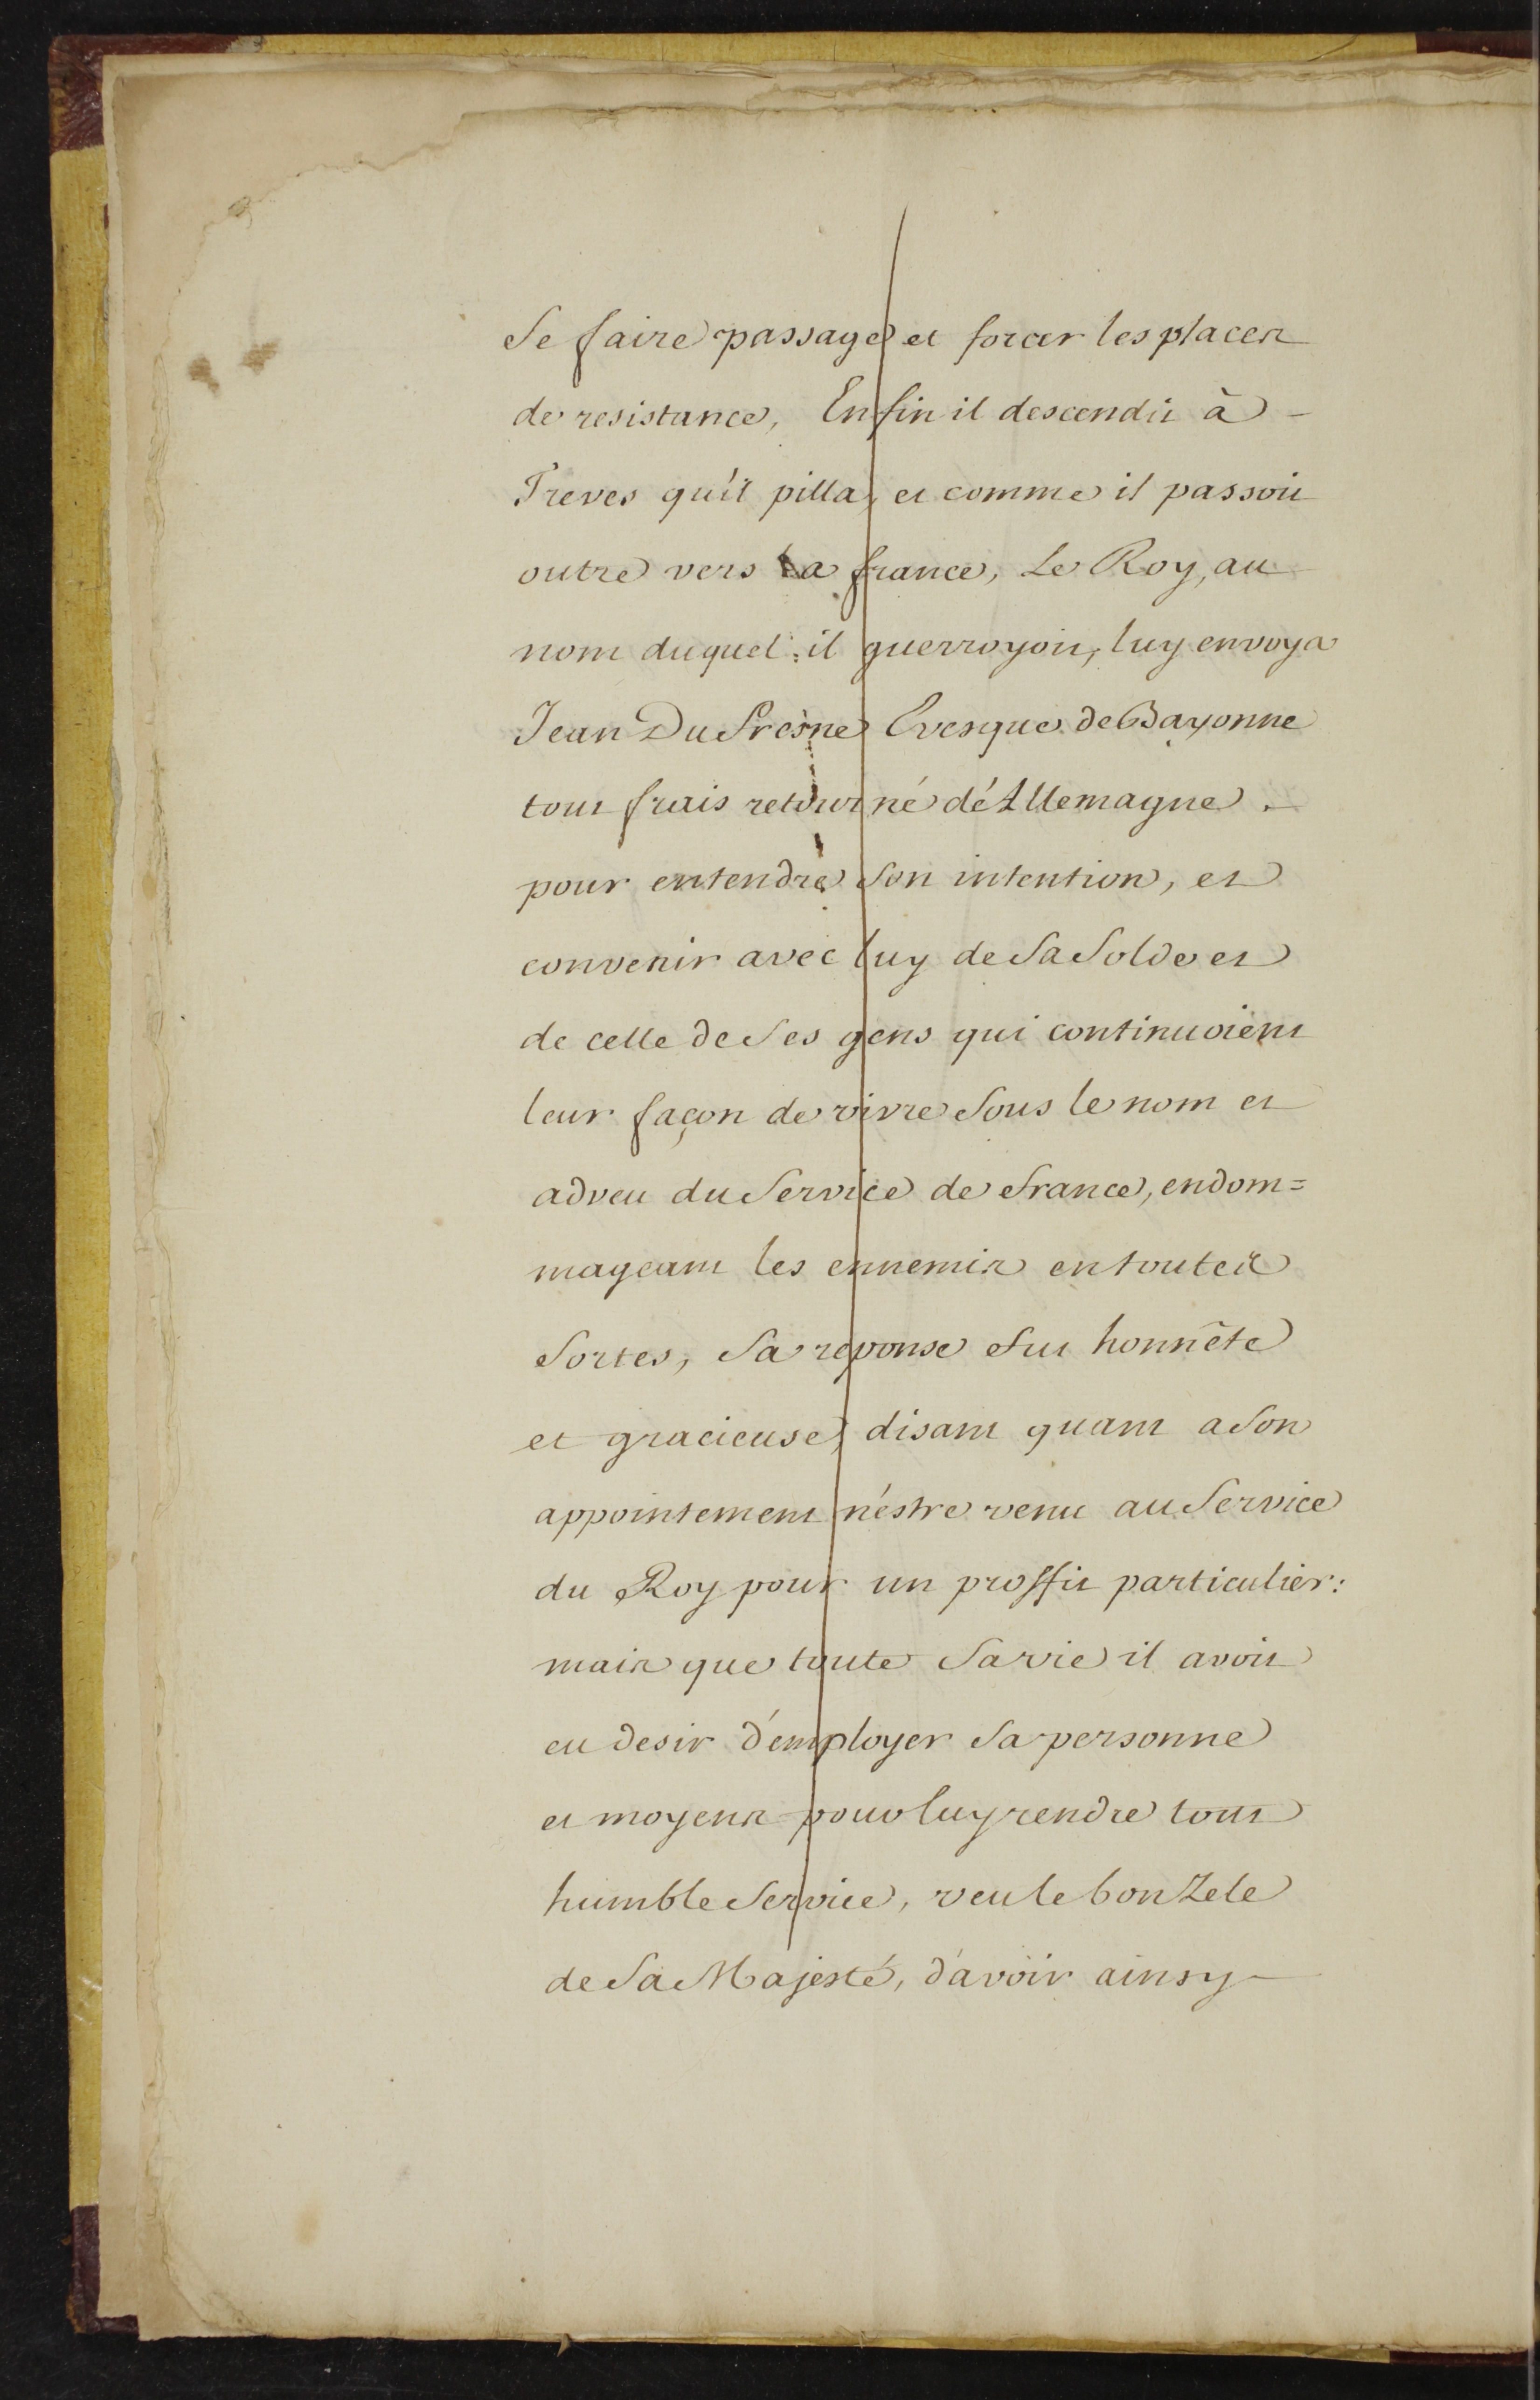 Se faire passage et forcer les places
de resistance, Enfin il descendit à -
Treves qu'il pilla, et comme il passoit
outre vers la france, Le Roy, au
nom duquel il guerroyoit, luy envoya
Jean Du fresne Evesque de Bayonne
tout frais retourné d'Allemagne.
pour entendre son intention, et
convenir avec luy de sa solde et
de celle de ses gens qui continuoient
leur façon de vivre sous le nom et
adveu du service de france, endom=
mageant les ennemis en toutes
sortes, sa reponse fut honnête
et gracieuse, disant quant a son
appointement n'estre venu au service
du Roy pour un proffit particulier:
mais que toute sa vie il avoit
eu desir d'employer sa personne
et moyens pour luy rendre tout
humble service, veu le bon Zele
de sa Majesté, d'avoir ainsy